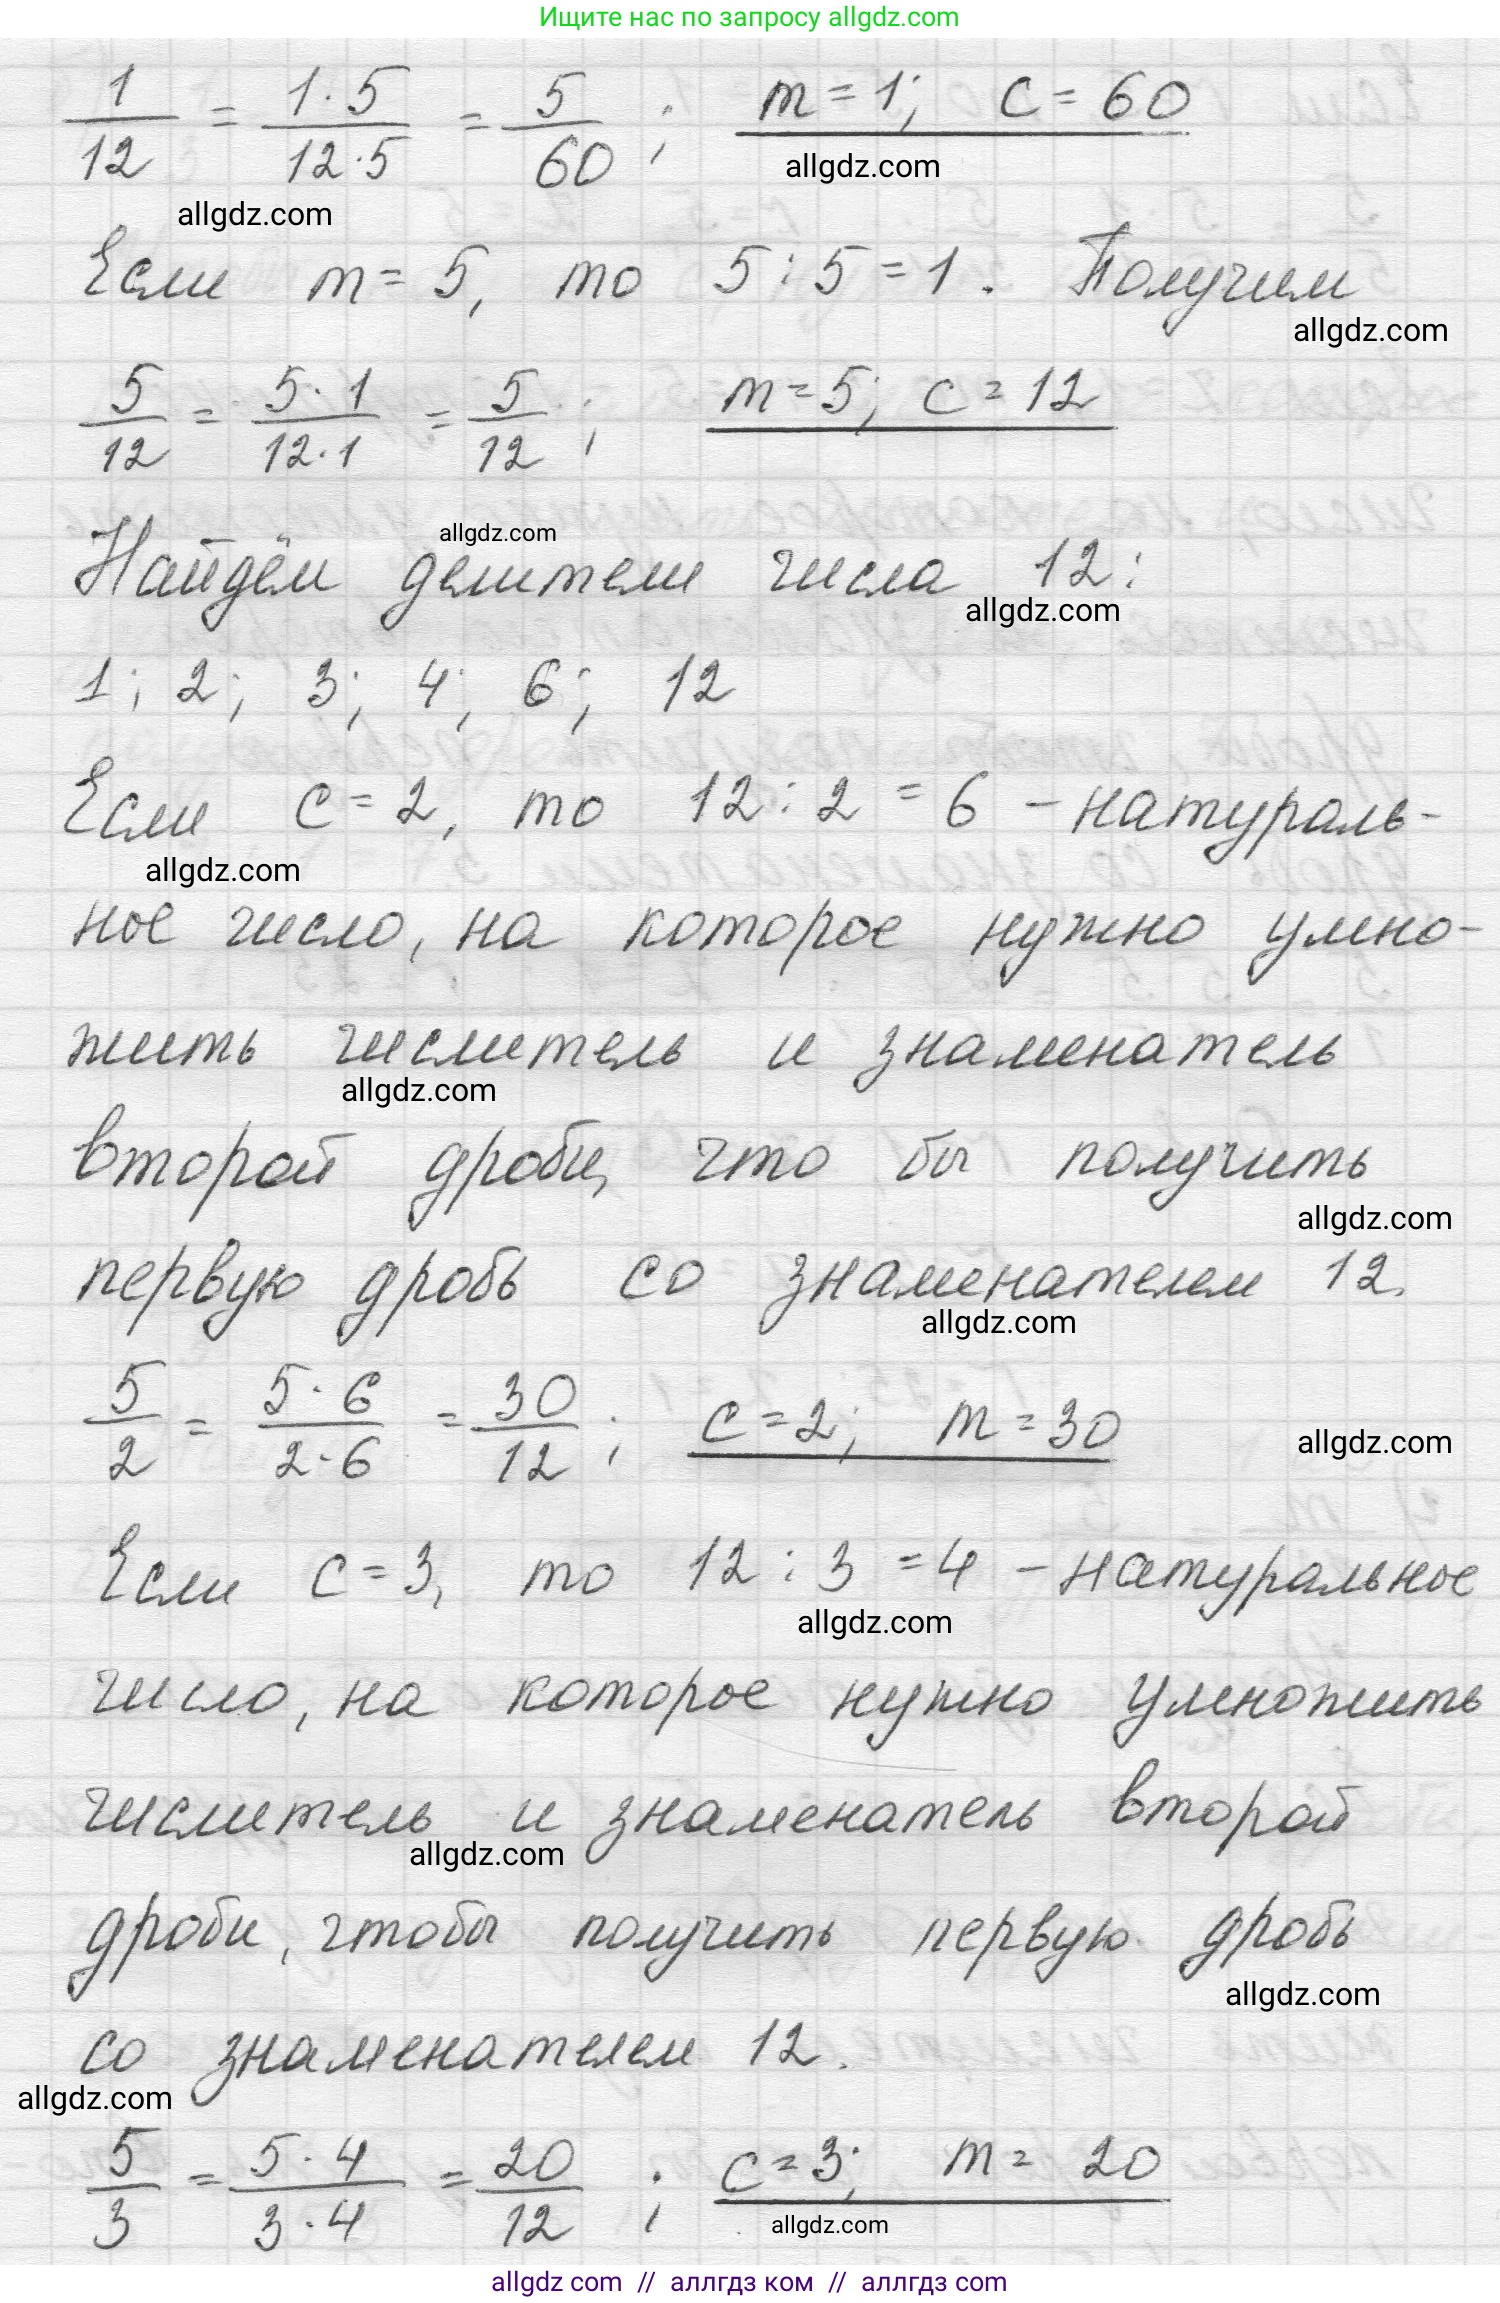 Ищите нас по запросу allgdz.com
1/12 = 1·5/12·5 = 5/60 ; m=1; c=60
allgdz.com
allgdz.com
Если m=5, то 5:5=1. Получим
allgdz.com
5/12 = 5·1/12·1 = 5/12 ; m=5; c=12
allgdz.com
Найдём делители числа 12:
allgdz.com
1; 2; 3; 4; 6; 12
Если c=2, то 12:2=6 – натураль-
allgdz.com
ное число, на которое нужно умно-
жить числитель и знаменатель
allgdz.com
второй дроби, что бы получить
allgdz.com
первую дробь со знаменателем 12.
allgdz.com
5/2 = 5·6/2·6 = 30/12 ; c=2; m=30
allgdz.com
Если c=3, то 12:3=4 – натуральное
allgdz.com
число, на которое нужно умножить
числитель и знаменатель второй
allgdz.com
дроби, чтобы получить первую дробь
allgdz.com
со знаменателем 12.
allgdz.com
5/3 = 5·4/3·4 = 20/12 ; c=3; m=20
allgdz.com
allgdz com // аллгдз ком // аллгдз com